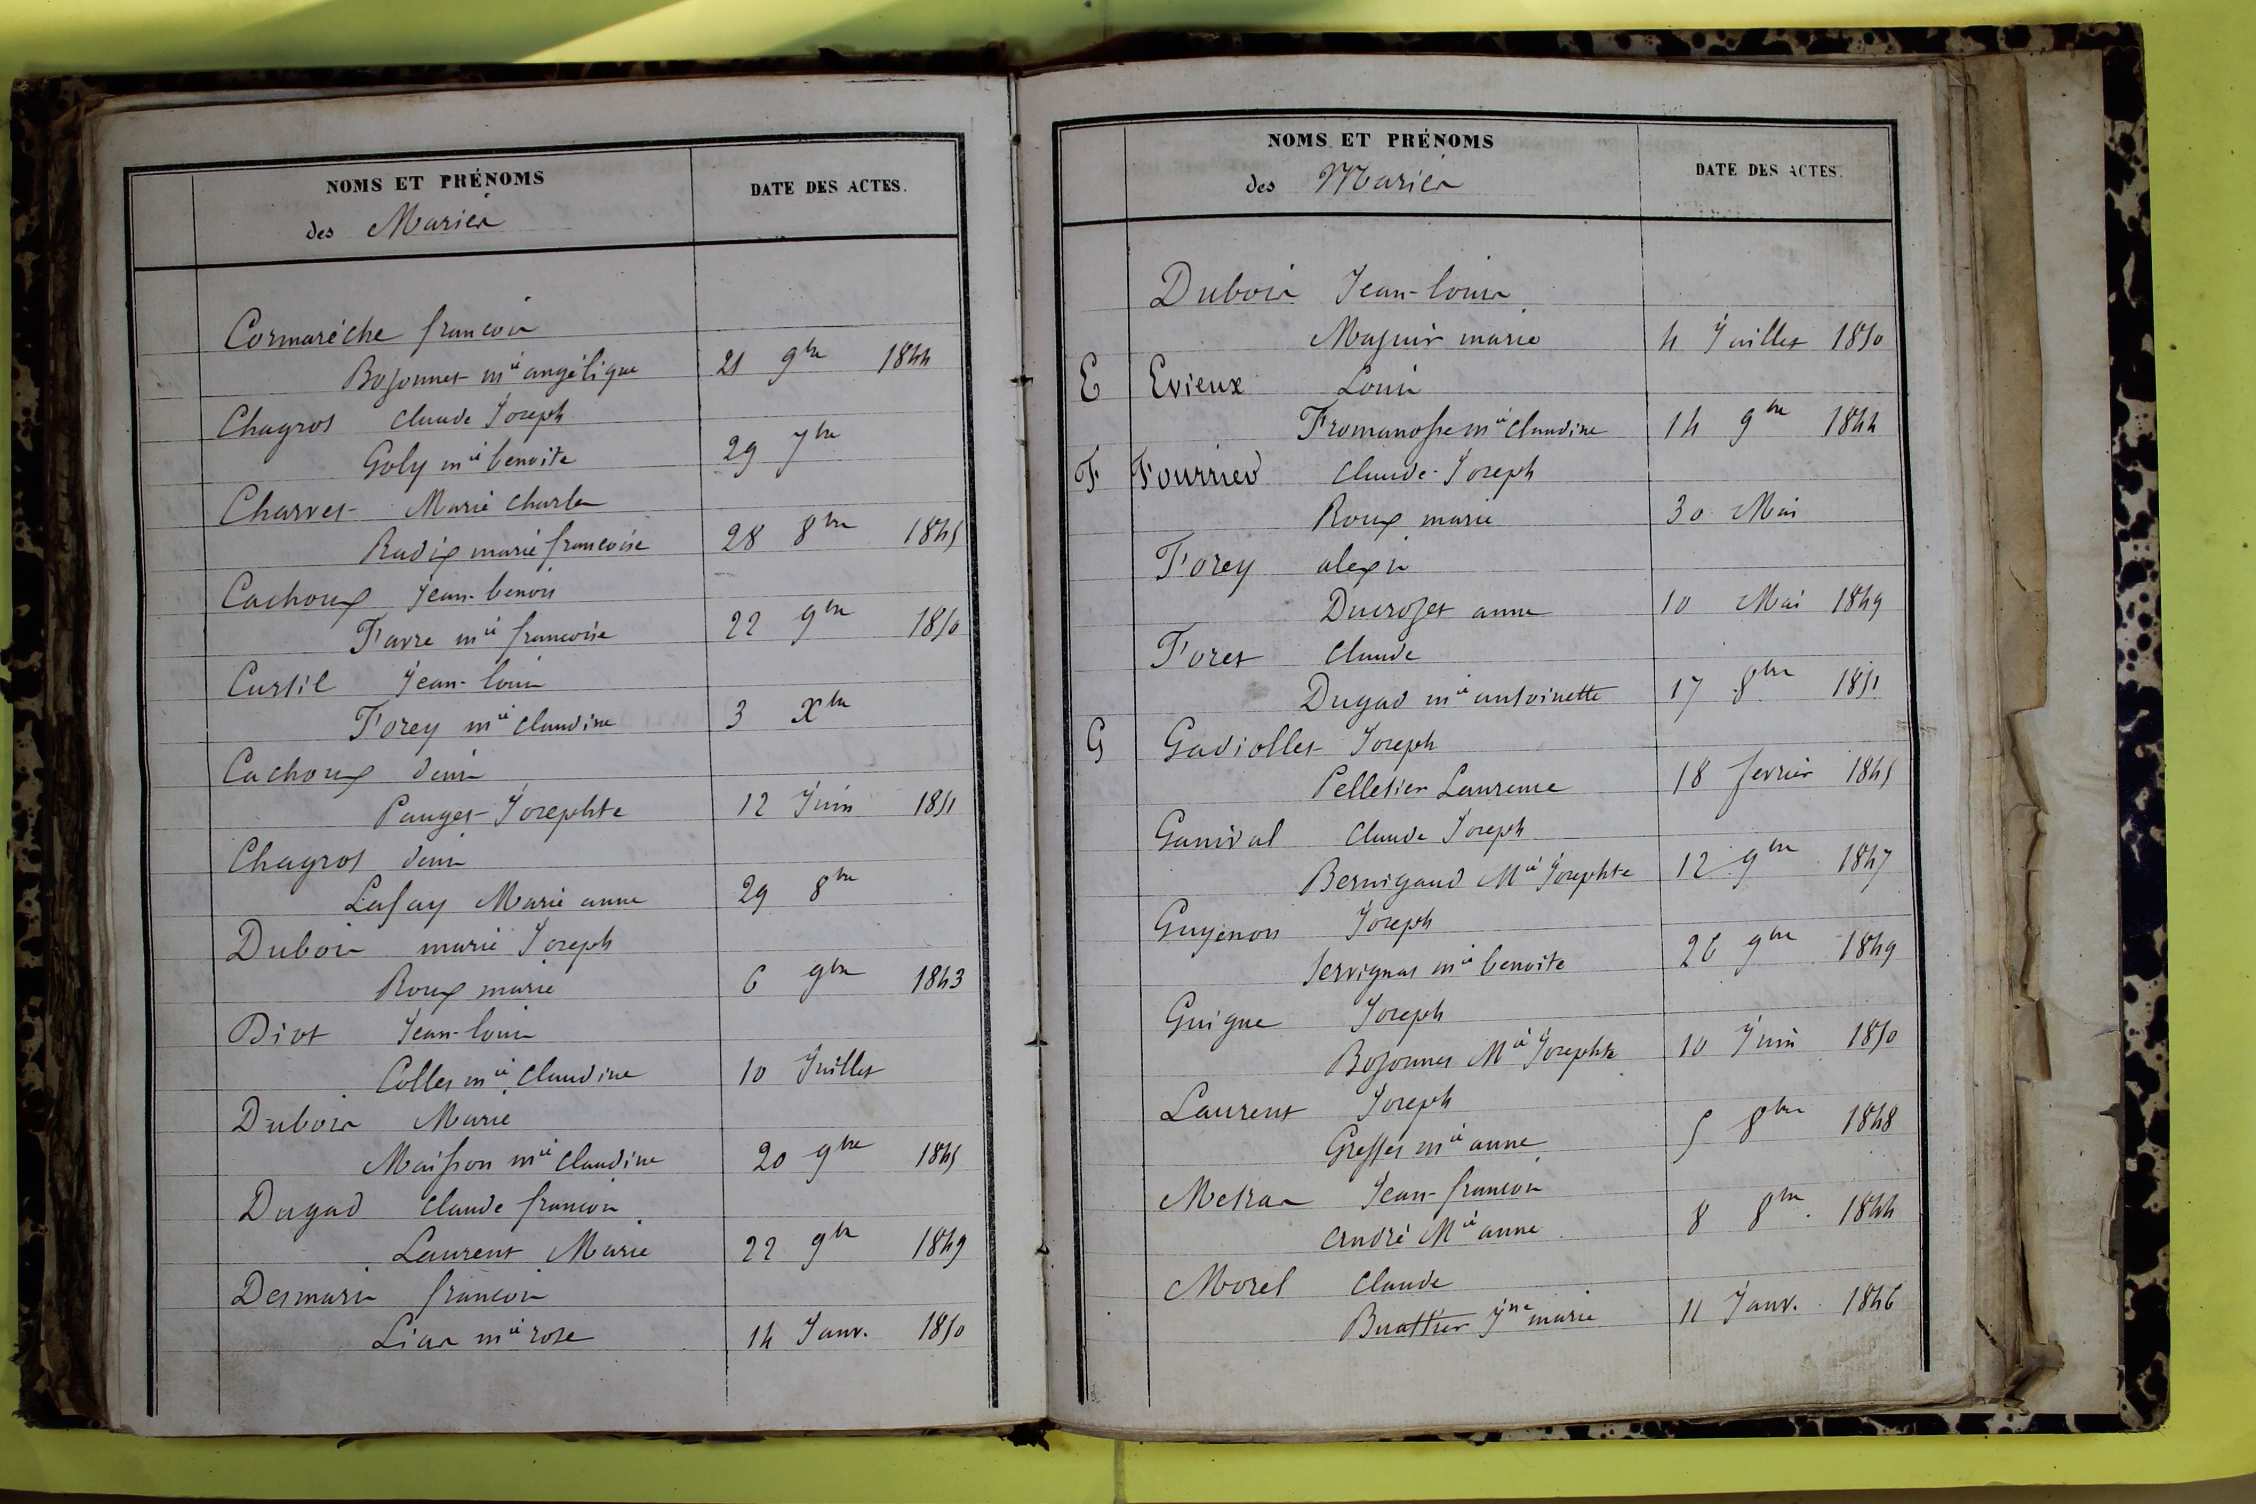 NOMS ET PRÉNOMS DATE DES ACTES.
des Mariés
Cormaréche françois
Bozonnet mie angélique 21 9bre 1844
Chagros Claude Joseph
Goly mie benoite 29 7bre
Charvet Marie Charles
Radix marie françoise 28 8bre 1845
Cachoux Jean-benoit
Favre mie françoise 22 9bre 1850
Curtil Jean-louis
Forey mie Claudine 3 Xbre
Cachoux denis
Pauget Josephte 12 Juin 1851
Chagros denis
Lafay Marie anne 29 8bre
Dubois marie Joseph
Roux marie 6 9bre 1843
Diot Jean-louis
Collet mie Claudine 10 Juillet
Dubois Marie
Maisson mie Claudine 20 9bre 1845
Dugad Claude françois
Laurent Marie 22 9bre 1849
Desmaris françois
Lias mie rose 14 Janv. 1850
NOMS ET PRÉNOMS DATE DES ACTES.
des Mariés
Dubois Jean-louis
marie 4 Juillet 1850
E Evieux Louis
Fromanosse mie Claudine 14 9bre 1844
F Fourrier Claude-Joseph
Roux marie 30 Mai
Forey alexis
Ducrozet anne 10 Mai 1849
Foret Claude
Dugad mie antoinette 17 8bre 1851
G Gadiollet Joseph
Pelletier Laurence 18 fevrier 1845
Ganival Claude Joseph
Bernigaud Mie Josephte 12 9bre 1847
Guyenon Joseph
Servignat mie benoite 26 9bre 1849
Guigue Joseph
Bozonnet Mie Josephte 10 Juin 1850
Laurent Joseph
Greffet mie anne 5 8bre 1848
Metras Jean-françois
André Mie anne 8 8bre 1844
Morel Claude
Buattier Jne marie 11 Janv. 1846